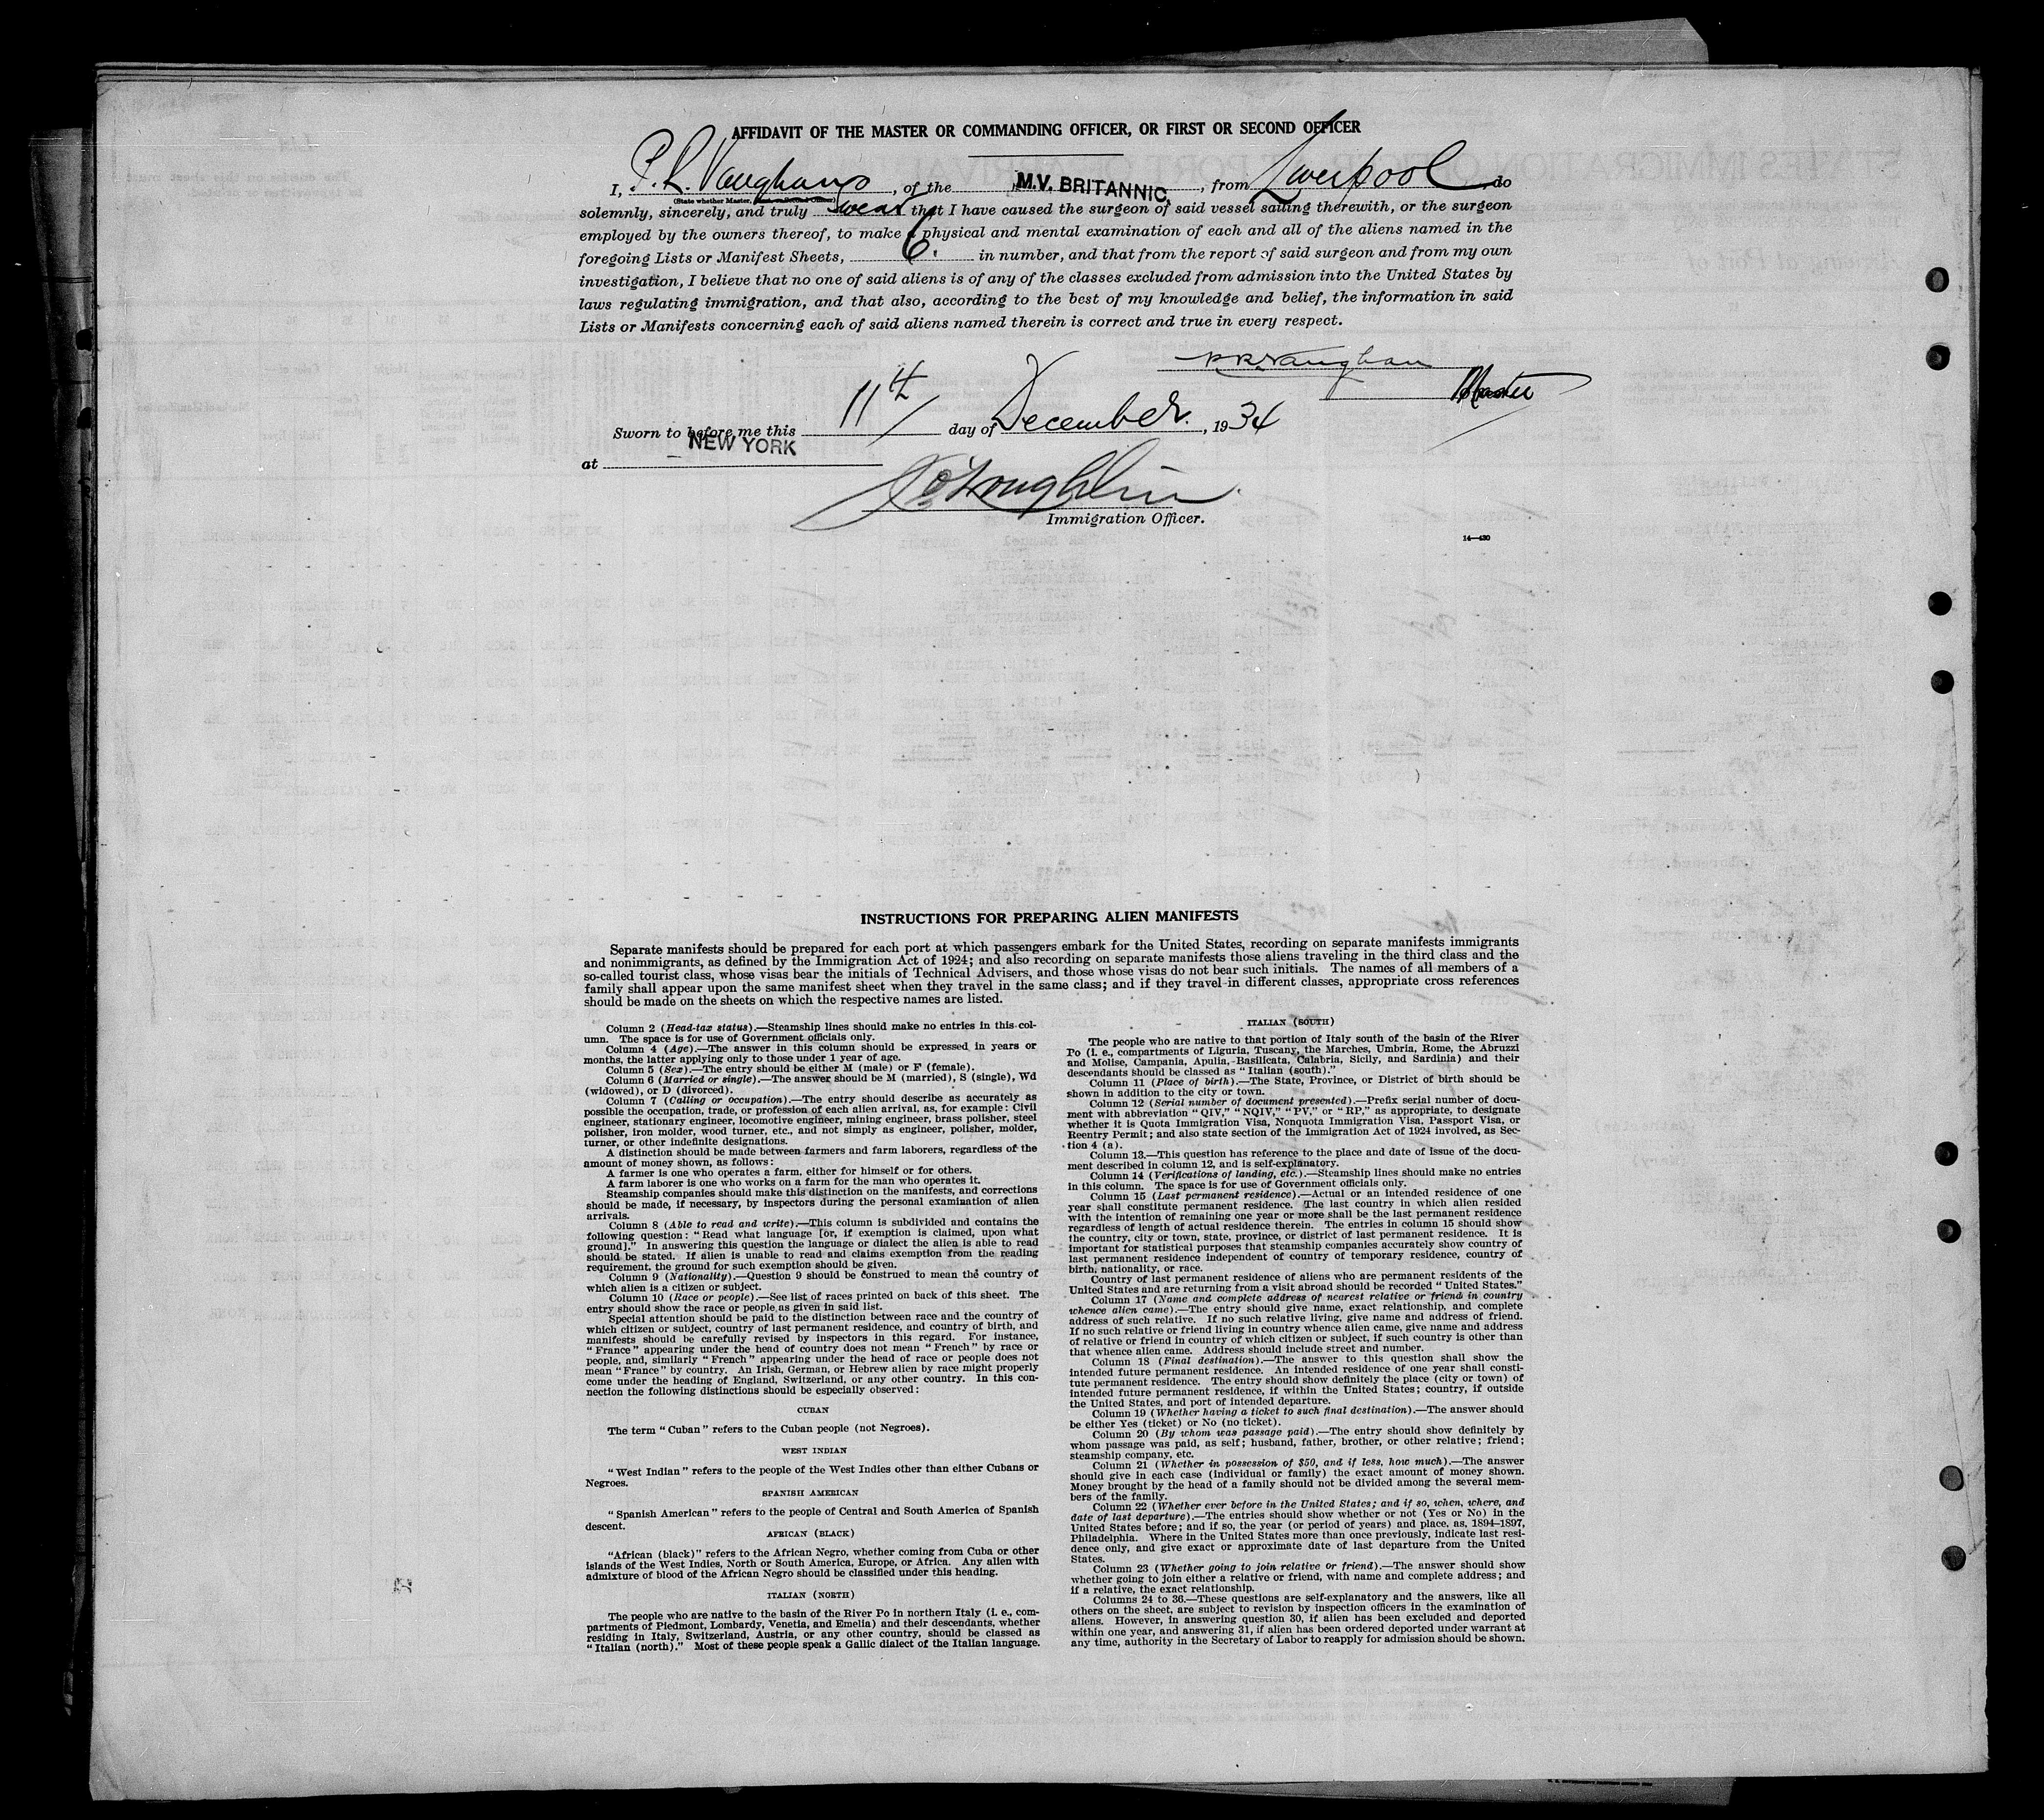 AFFIDAVIT OF THE MASTER OR COMMANDING OFFICER, OR FIRST OR SECOND OFFICER
I, P. R. Vaughan, of the M.V. BRITANNIC, from Liverpool, do
(State whether Master, First, or Second Officer)
solemnly, sincerely, and truly swear that I have caused the surgeon of said vessel sailing therewith, or the surgeon
employed by the owners thereof, to make a physical and mental examination of each and all of the aliens named in the
foregoing Lists or Manifest Sheets, 6. in number, and that from the report of said surgeon and from my own
investigation, I believe that no one of said aliens is of any of the classes excluded from admission into the United States by
laws regulating immigration, and that also, according to the best of my knowledge and belief, the information in said
Lists or Manifests concerning each of said aliens named therein is correct and true in every respect.
P R Vaughan
Master
Sworn to before me this 11th day of December, 1934
at NEW YORK
O'Loughlin
Immigration Officer.
14—430
INSTRUCTIONS FOR PREPARING ALIEN MANIFESTS
Separate manifests should be prepared for each port at which passengers embark for the United States, recording on separate manifests immigrants
and nonimmigrants, as defined by the Immigration Act of 1924; and also recording on separate manifests those aliens traveling in the third class and the
so-called tourist class, whose visas bear the initials of Technical Advisers, and those whose visas do not bear such initials. The names of all members of a
family shall appear upon the same manifest sheet when they travel in the same class; and if they travel in different classes, appropriate cross references
should be made on the sheets on which the respective names are listed.
Column 2 (Head-tax status).—Steamship lines should make no entries in this col-
umn. The space is for use of Government officials only.
Column 4 (Age).—The answer in this column should be expressed in years or
months, the latter applying only to those under 1 year of age.
Column 5 (Sex).—The entry should be either M (male) or F (female).
Column 6 (Married or single).—The answer should be M (married), S (single), Wd
(widowed), or D (divorced).
Column 7 (Calling or occupation).—The entry should describe as accurately as
possible the occupation, trade, or profession of each alien arrival, as, for example: Civil
engineer, stationary engineer, locomotive engineer, mining engineer, brass polisher, steel
polisher, iron molder, wood turner, etc., and not simply as engineer, polisher, molder,
turner, or other indefinite designations.
A distinction should be made between farmers and farm laborers, regardless of the
amount of money shown, as follows:
A farmer is one who operates a farm, either for himself or for others.
A farm laborer is one who works on a farm for the man who operates it.
Steamship companies should make this distinction on the manifests, and corrections
should be made, if necessary, by inspectors during the personal examination of alien
arrivals.
Column 8 (Able to read and write).—This column is subdivided and contains the
following question: "Read what language [or, if exemption is claimed, upon what
ground]." In answering this question the language or dialect the alien is able to read
should be stated. If alien is unable to read and claims exemption from the reading
requirement, the ground for such exemption should be given.
Column 9 (Nationality).—Question 9 should be construed to mean the country of
which alien is a citizen or subject.
Column 10 (Race or people).—See list of races printed on back of this sheet. The
entry should show the race or people as given in said list.
Special attention should be paid to the distinction between race and the country of
which citizen or subject, country of last permanent residence, and country of birth, and
manifests should be carefully revised by inspectors in this regard. For instance,
"France" appearing under the head of country does not mean "French" by race or
people, and, similarly "French" appearing under the head of race or people does not
mean "France" by country. An Irish, German, or Hebrew alien by race might properly
come under the heading of England, Switzerland, or any other country. In this con-
nection the following distinctions should be especially observed:
CUBAN
The term "Cuban" refers to the Cuban people (not Negroes).
WEST INDIAN
"West Indian" refers to the people of the West Indies other than either Cubans or
Negroes.
SPANISH AMERICAN
"Spanish American" refers to the people of Central and South America of Spanish
descent.
AFRICAN (BLACK)
"African (black)" refers to the African Negro, whether coming from Cuba or other
islands of the West Indies, North or South America, Europe, or Africa. Any alien with
admixture of blood of the African Negro should be classified under this heading.
ITALIAN (NORTH)
The people who are native to the basin of the River Po in northern Italy (i. e., com-
partments of Piedmont, Lombardy, Venetia, and Emelia) and their descendants, whether
residing in Italy, Switzerland, Austria, or any other country, should be classed as
"Italian (north)." Most of these people speak a Gallic dialect of the Italian language.
ITALIAN (SOUTH)
The people who are native to that portion of Italy south of the basin of the River
Po (i. e., compartments of Liguria, Tuscany, the Marches, Umbria, Rome, the Abruzzi
and Molise, Campania, Apulia, Basilicata, Calabria, Sicily, and Sardinia) and their
descendants should be classed as "Italian (south)."
Column 11 (Place of birth).—The State, Province, or District of birth should be
shown in addition to the city or town.
Column 12 (Serial number of document presented).—Prefix serial number of docu-
ment with abbreviation "QIV," "NQIV," "PV," or "RP," as appropriate, to designate
whether it is Quota Immigration Visa, Nonquota Immigration Visa, Passport Visa, or
Reentry Permit; and also state section of the Immigration Act of 1924 involved, as Sec-
tion 4 (a).
Column 13.—This question has reference to the place and date of issue of the docu-
ment described in column 12, and is self-explanatory.
Column 14 (Verifications of landing, etc.).—Steamship lines should make no entries
in this column. The space is for use of Government officials only.
Column 15 (Last permanent residence).—Actual or an intended residence of one
year shall constitute permanent residence. The last country in which alien resided
with the intention of remaining one year or more shall be the last permanent residence
regardless of length of actual residence therein. The entries in column 15 should show
the country, city or town, state, province, or district of last permanent residence. It is
important for statistical purposes that steamship companies accurately show country of
last permanent residence independent of country of temporary residence, country of
birth, nationality, or race.
Country of last permanent residence of aliens who are permanent residents of the
United States and are returning from a visit abroad should be recorded "United States."
Column 17 (Name and complete address of nearest relative or friend in country
whence alien came).—The entry should give name, exact relationship, and complete
address of such relative. If no such relative living, give name and address of friend.
If no such relative or friend living in country whence alien came, give name and address
of relative or friend in country of which citizen or subject, if such country is other than
that whence alien came. Address should include street and number.
Column 18 (Final destination).—The answer to this question shall show the
intended future permanent residence. An intended residence of one year shall consti-
tute permanent residence. The entry should show definitely the place (city or town) of
intended future permanent residence, if within the United States; country, if outside
the United States, and port of intended departure.
Column 19 (Whether having a ticket to such final destination).—The answer should
be either Yes (ticket) or No (no ticket).
Column 20 (By whom was passage paid).—The entry should show definitely by
whom passage was paid, as self; husband, father, brother, or other relative; friend;
steamship company, etc.
Column 21 (Whether in possession of $50, and if less, how much).—The answer
should give in each case (individual or family) the exact amount of money shown.
Money brought by the head of a family should not be divided among the several mem-
bers of the family.
Column 22 (Whether ever before in the United States; and if so, when, where, and
date of last departure).—The entries should show whether or not (Yes or No) in the
United States before; and if so, the year (or period of years) and place, as, 1894–1897,
Philadelphia. Where in the United States more than once previously, indicate last resi-
dence only, and give exact or approximate date of last departure from the United
States.
Column 23 (Whether going to join relative or friend).—The answer should show
whether going to join either a relative or friend, with name and complete address; and
if a relative, the exact relationship.
Columns 24 to 36.—These questions are self-explanatory and the answers, like all
others on the sheet, are subject to revision by inspection officers in the examination of
aliens. However, in answering question 30, if alien has been excluded and deported
within one year, and answering 31, if alien has been ordered deported under warrant at
any time, authority in the Secretary of Labor to reapply for admission should be shown.